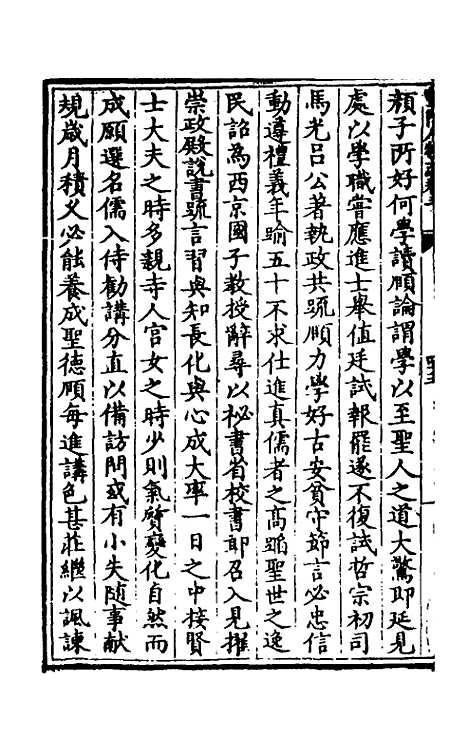 顏子所好何學讀頤論謂學以至聖人之道大驚即延見
處以學職嘗應進士舉值廷試報罷遂不復試哲宗初司
馬光呂公著執政共疏頤力學好古安貧守節言必忠信
動遵禮義年踰五十不求仕進真儒者之高蹈聖世之逸
民詔為西京國子教授辭尋以祕書省校書郎召入見擢
崇政殿說書疏言習與知長化與心成大率一日之中接賢
士大夫之時多親寺人宮女之時少則氣質變化自然而
成願選名儒入侍勸講分直以備訪問或有小失隨事献
規歲月積久必能養成聖德頤每進講色甚莊繼以諷諫